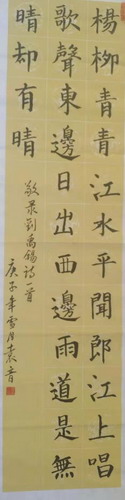 楊柳青青江水平聞郎江上唱
歌聲東邊日出西邊雨道是無
晴却有晴
敬录刘禹錫詩一首
庚子年雪月袁音